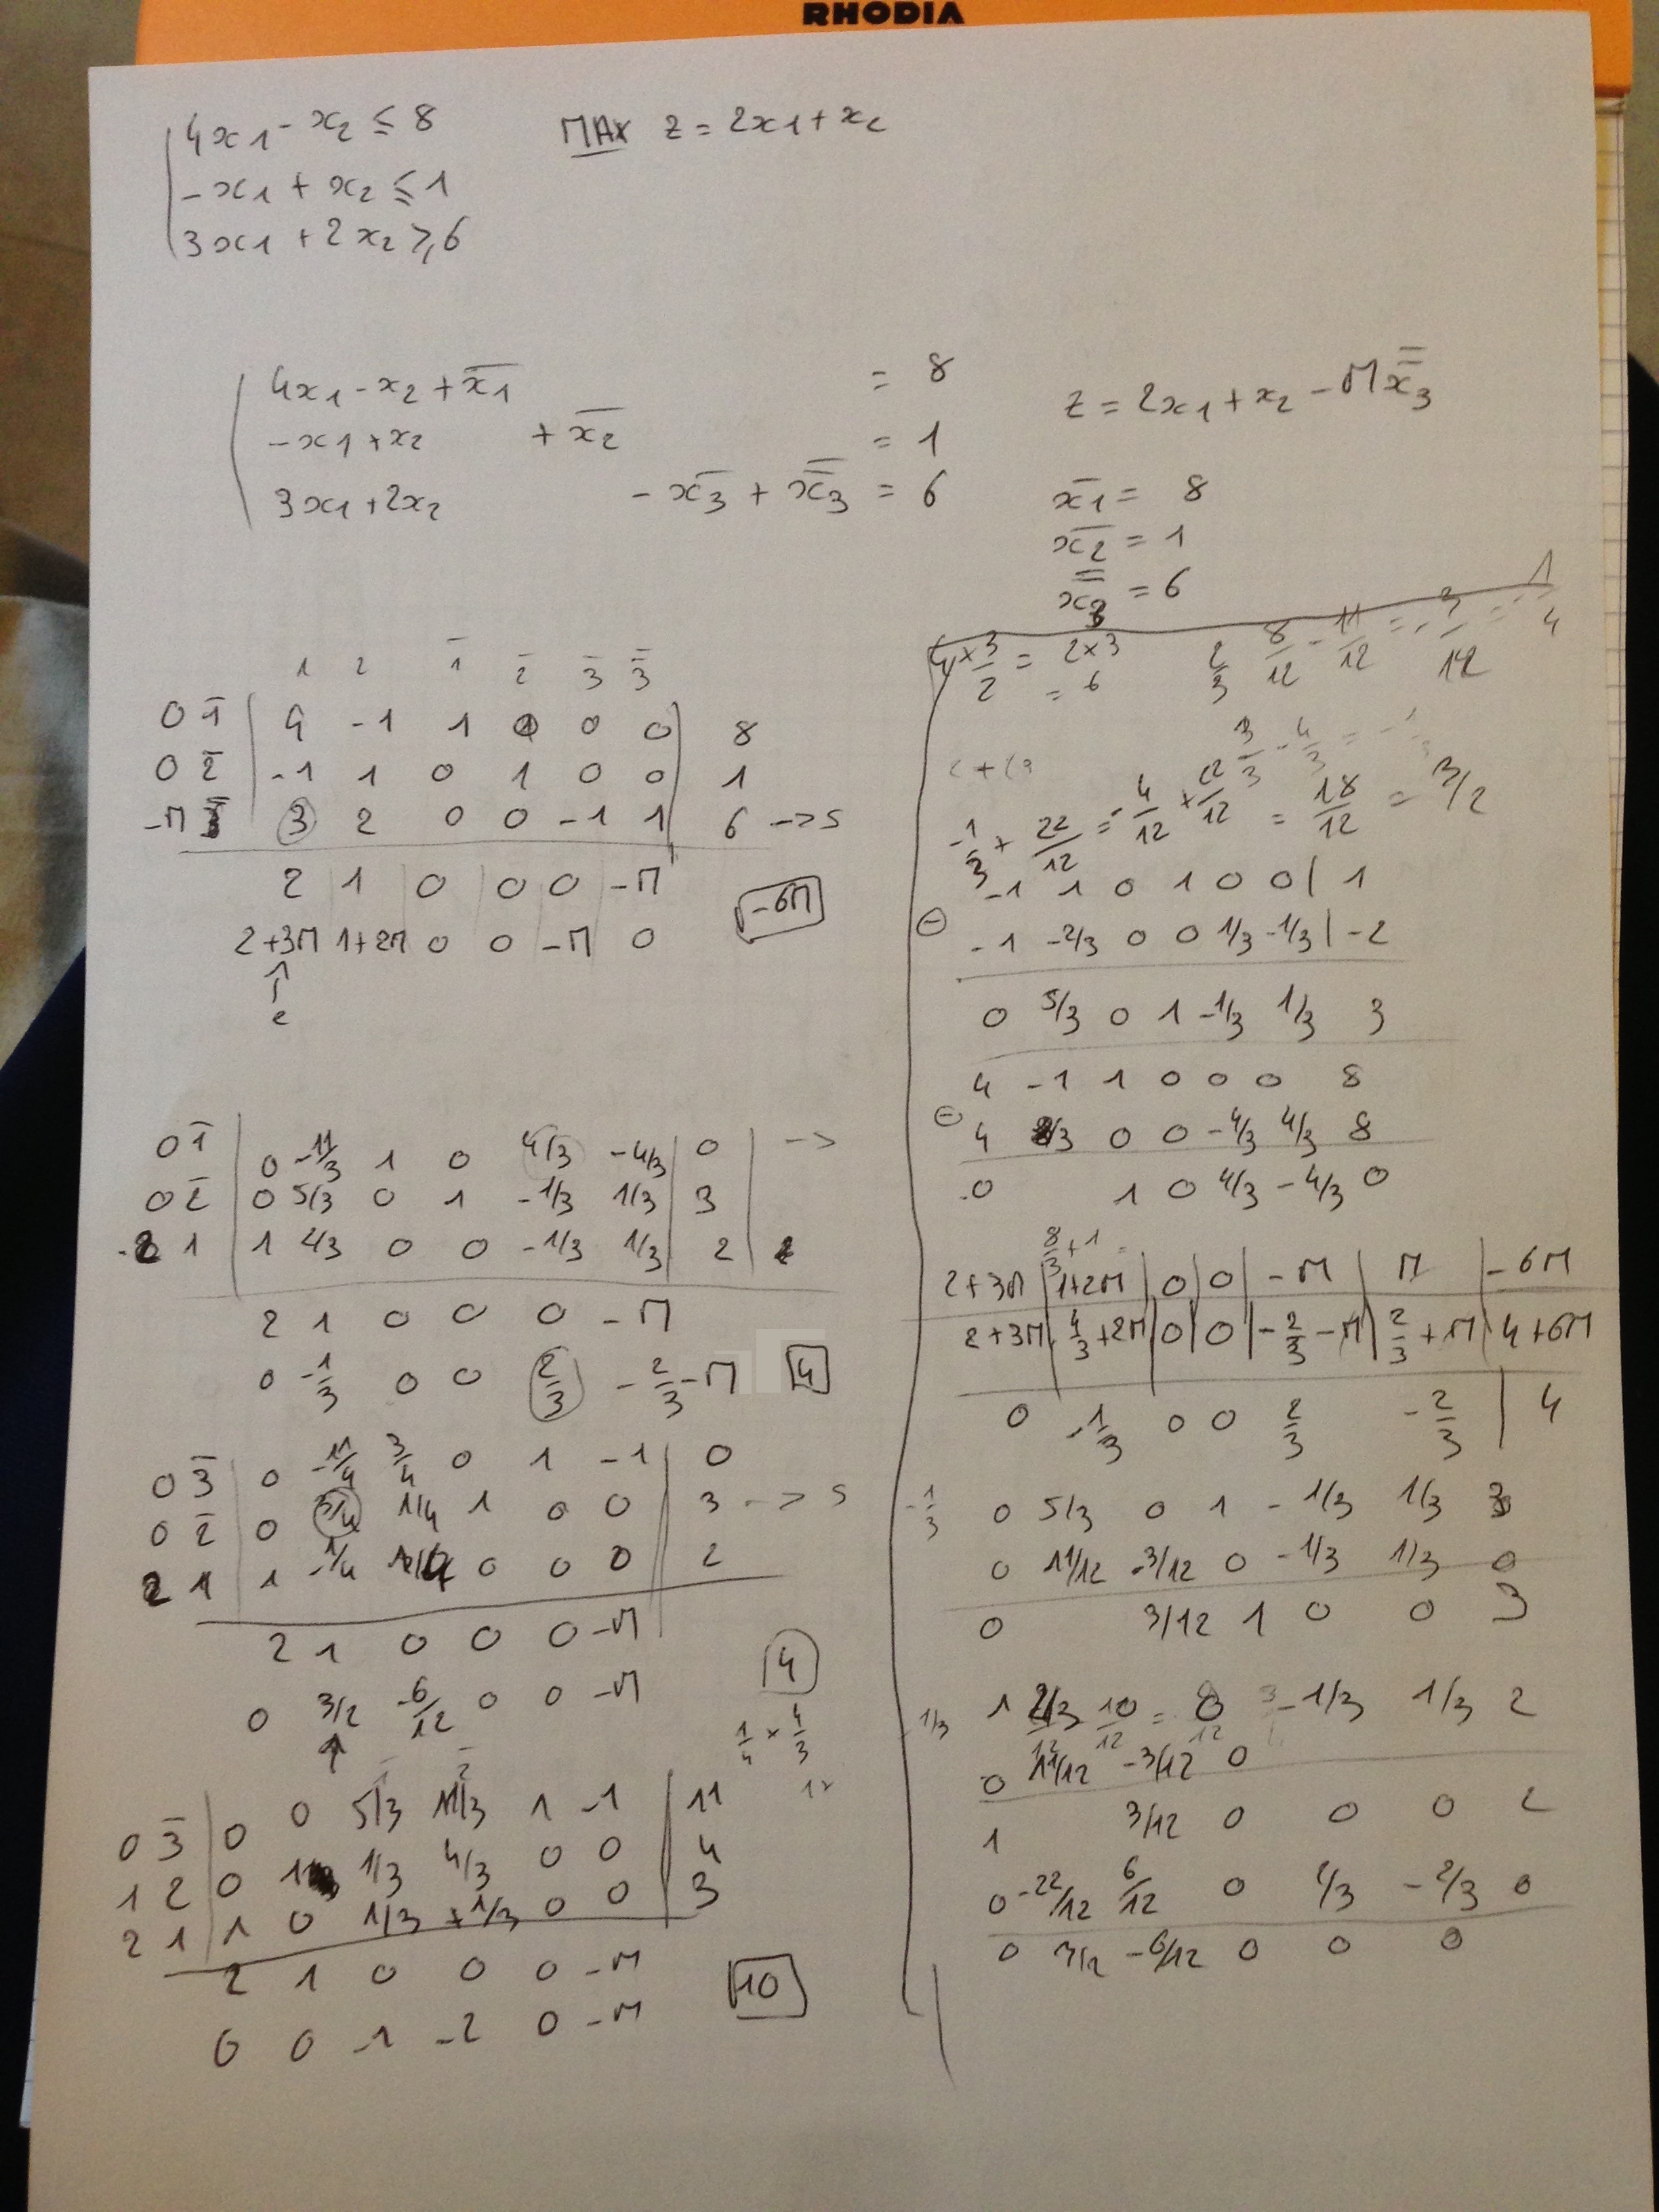 RHODIA
4x1 - x2 ≤ 8 MAX z = 2x1 + x2
-x1 + x2 ≤ 1
3x1 + 2x2 ≥ 6
4x1 - x2 + x̄1 = 8
-x1 + x2 + x̄2 = 1
3x1 + 2x2 - x̄3 + x̿3 = 6
z = 2x1 + x2 - Mx̿3
x̄1 = 8
x̄2 = 1
x̿3 = 6
1 2 1̄ 2̄ 3̄ 3̿
0 1̄ | 4 -1 1 0 0 0 | 8
0 2̄ | -1 1 0 1 0 0 | 1
-M 3̿ | 3 2 0 0 -1 1 | 6 -> S
2 1 0 0 0 -M
2+3M 1+2M 0 0 -M 0 -6M
e
0 1̄ | 0 -11/3 1 0 4/3 -4/3 | 0 | ->
0 2̄ | 0 5/3 0 1 -1/3 1/3 | 3
2 1 | 1 2/3 0 0 -1/3 1/3 | 2
2 1 0 0 0 -M
0 -1/3 0 0 2/3 -2/3-M 4
0 3̄ | 0 -11/4 3/4 0 1 -1 | 0
0 2̄ | 0 3/4 1/4 1 0 0 | 3 -> S
2 1 | 1 -1/4 1/4 0 0 0 | 2
2 1 0 0 0 -M
0 3/2 -6/12 0 0 -M 4
1/4 × 4/3
12
0 3̄ | 0 0 5/3 11/3 1 -1 | 11
1 2 | 0 1 1/3 4/3 0 0 | 4
2 1 | 1 0 1/3 +1/3 0 0 | 3
2 1 0 0 0 -M 10
0 0 -1 -2 0 -M
4 × 3/2 = 2×3 = 6
2/3 8/12 - 11/12 = -3/12 = -1/4
3/3 - 4/3 =
-1/3 + 22/12 = -4/12 + 22/12 = 18/12 = 3/2
-1 1 0 1 0 0 | 1
⊖ -1 -2/3 0 0 1/3 -1/3 | -2
0 5/3 0 1 -1/3 1/3 3
4 -1 1 0 0 0 8
⊖ 4 8/3 0 0 -4/3 4/3 8
0 1 0 4/3 -4/3 0
8/3 + 1 =
2+3M | 1+2M | 0 | 0 | -M | M | -6M
2+3M | 4/3+2M | 0 | 0 | -2/3-M | 2/3+M | 4+6M
0 -1/3 0 0 2/3 -2/3 | 4
-1/3 0 5/3 0 1 -1/3 1/3 3
0 11/12 -3/12 0 -1/3 1/3 0
0 3/12 1 0 0 3
-1/3 1 2/3 10/12 = 8/12 -1/3 1/3 2
0 11/12 -3/12 0
1 3/12 0 0 0 2
0 -22/12 6/12 0 2/3 -2/3 0
0 3/2 -6/12 0 0 0